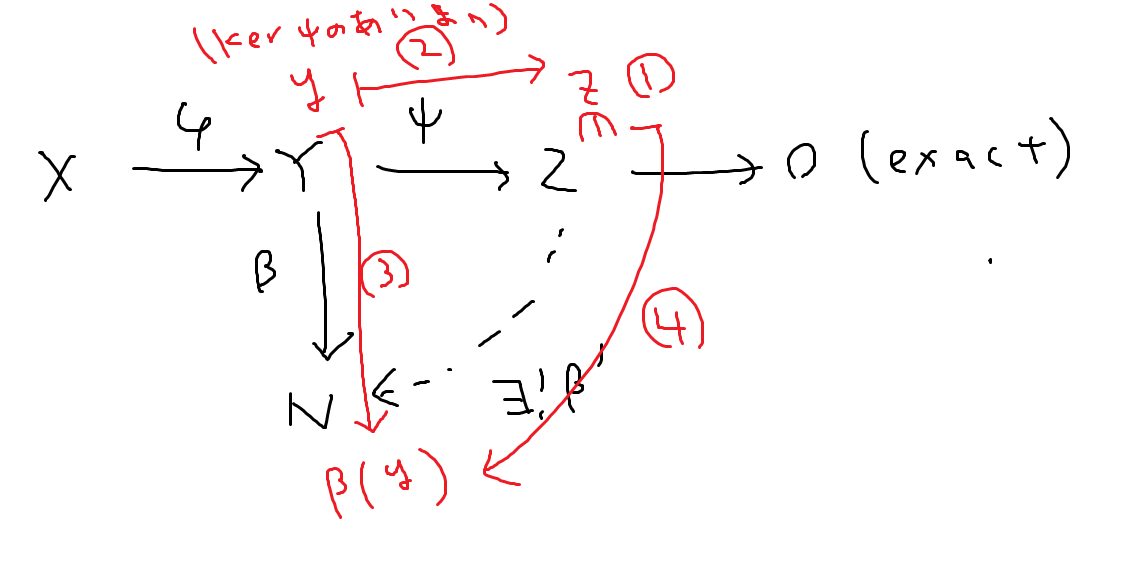 (Ker ψのあいまい)
y ② z ①
φ ψ
X → Y → Z → 0 (exact)
β ③ ④
N ∃!β'
β(y)